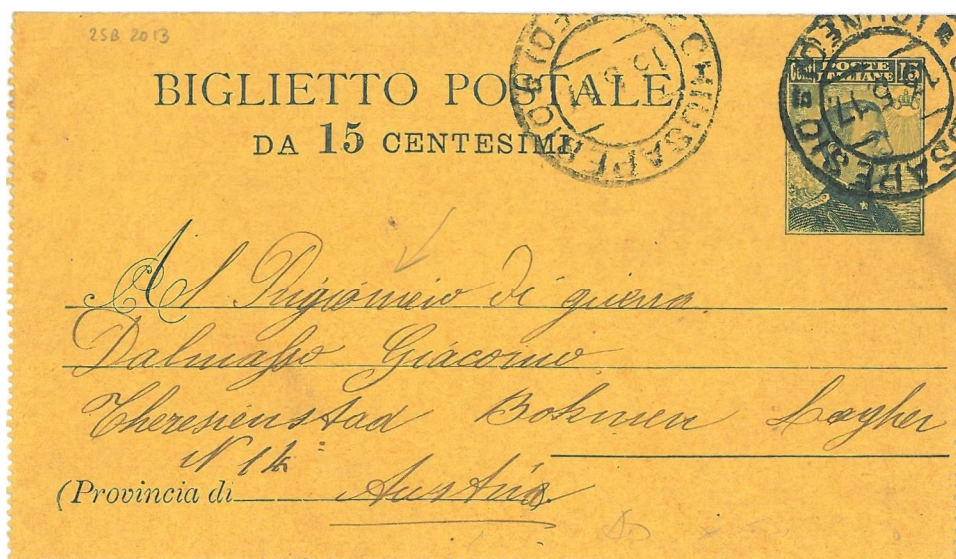 2SB 2013
BIGLIETTO POSTALE
DA 15 CENTESIMI
CHIUSAPESIO
CUNEO
15 5 17
Cent. 15
POSTE
ITALIANE
CHIUSAPESIO
CUNEO
5 17
Al Prigioneio di guerra
Dalmasso Giacomo
Theresienstad Bohmen Lagher
N 14
(Provincia di Austria